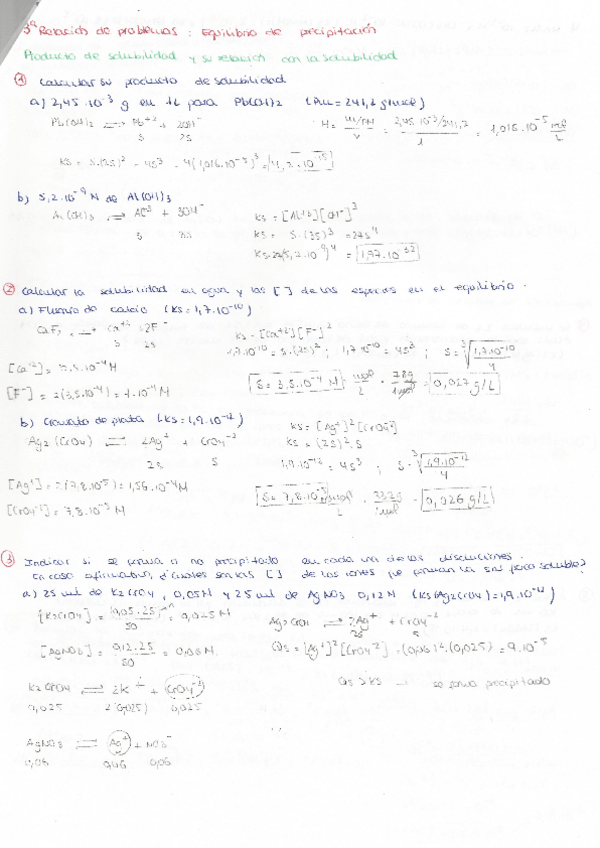 3ª Relación de problemas: Equilibrio de precipitación
Producto de solubilidad y su relación con la solubilidad
① Calcular su producto de solubilidad
a) 2,45·10⁻³ g en 1L para Pb(OH)₂ (Mu=241,2 g/mol)
Pb(OH)₂ ⇌ Pb⁺² + 2OH⁻
s 2s
M = = 2,45·10⁻³/241,2 / 1 = 1,015·10⁻⁵ mol/L
Ks = s·(2s)² = 4s³ = 4(1,016·10⁻⁵)³ = 4,2·10⁻¹⁵
b) 5,2·10⁻⁹ M de Al(OH)₃
Al(OH)₃ ⇌ Al⁺³ + 3OH⁻
s 3s
Ks = [Al⁺³][OH⁻]³
Ks = s·(3s)³ = 27s⁴
Ks = 27(5,2·10⁻⁹)⁴ = 1,97·10⁻³²
② Calcular la solubilidad en agua y las [ ] de las especies en el equilibrio.
a) Fluoruro de calcio (Ks=1,7·10⁻¹⁰)
CaF₂ ⇌ Ca⁺² + 2F⁻
s 2s
Ks = [Ca⁺²][F⁻]²
1,7·10⁻¹⁰ = s·(2s)²; 1,7·10⁻¹⁰ = 4s³; s = ∛1,7·10⁻¹⁰/4
[Ca⁺²] = 3,5·10⁻⁴ M
[F⁻] = 2(3,5·10⁻⁴) = 7·10⁻⁴ M
s = 3,5·10⁻⁴ mol/L · 78g/1mol = 0,027 g/L
b) Cromato de plata (Ks=1,9·10⁻¹²)
Ag₂(CrO₄) ⇌ 2Ag⁺ + CrO₄⁻²
2s s
Ks = [Ag⁺]²[CrO₄⁻²]
Ks = (2s)²·s
1,9·10⁻¹² = 4s³; s = ∛1,9·10⁻¹²/4
[Ag⁺] = 2(7,8·10⁻⁵) = 1,56·10⁻⁴ M
[CrO₄⁻²] = 7,8·10⁻⁵ M
s = 7,8·10⁻⁵ mol/L · g/1mol = 0,026 g/L
③ Indicar si se forma o no precipitado en cada una de las disoluciones.
En caso afirmativo, ¿cuáles son las [ ] de los iones que forman la sal poco soluble?
a) 25 ml de K₂CrO₄ 0,05M y 25 ml de AgNO₃ 0,12M (Ks(Ag₂CrO₄)=1,9·10⁻¹²)
[K₂CrO₄] = 0,05·25/50 = 0,025M
Ag₂CrO₄ ⇌ 2Ag⁺ + CrO₄⁻²
2s s
[AgNO₃] = 0,12·25/50 = 0,06M
Qs = [Ag⁺]²[CrO₄⁻²] = (0,06)²·(0,025) = 9·10⁻⁵
Qs > Ks → se forma precipitado
K₂CrO₄ ⇌ 2K⁺ + CrO₄⁻²
0,025 2(0,025) 0,025
AgNO₃ ⇌ Ag⁺ + NO₃⁻
0,06 0,06 0,06